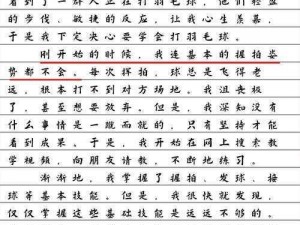 看到了一群人正在打羽毛球。他们轻盈
的步伐，敏捷的反应，让我心生羡慕，
于是我下定决心要学会打羽毛球。
刚开始的时候，我连基本的握拍姿
势都不会。每次挥拍，球总是飞得老
远，根本打不到对方场地。我有些沮丧极
了，甚至想要放弃。但是，我深知没有
什么事情是一蹴而就的，只有坚持才能
看到成果。于是，我开始在网上搜索教
学视频，向朋友请教，不断地练习。
渐渐地，我掌握了握拍、发球、接
球等基本技能。但是，我很快就发现，
仅仅掌握这些基础技能是远远不够的。